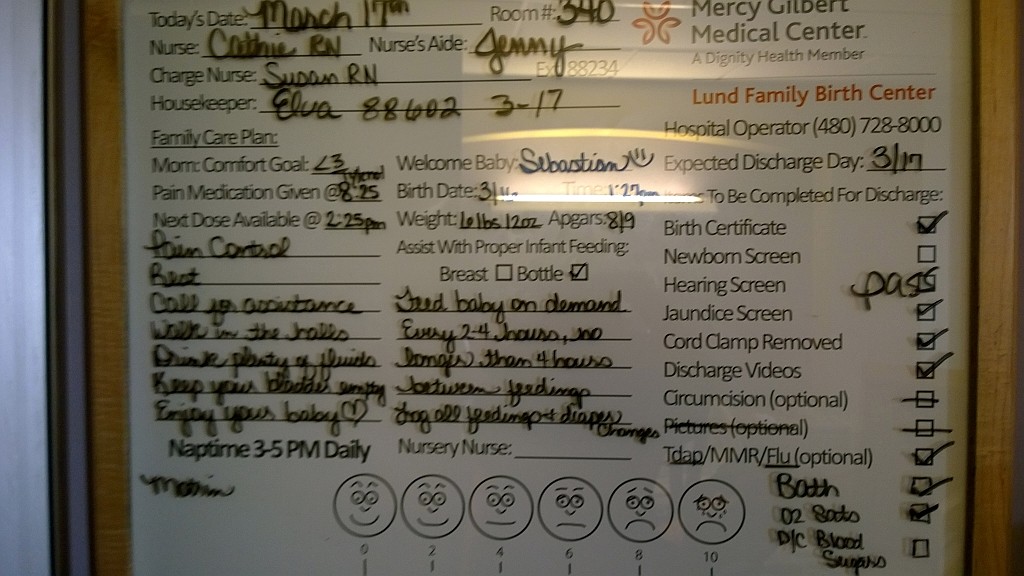 Today's Date: March 17th Room #: 340
Nurse: Cathie RN Nurse's Aide: Jenny
Charge Nurse: Susan RN Ext 88234
Housekeeper: Elva 88602 3-17
Mercy Gilbert
Medical Center
A Dignity Health Member
Lund Family Birth Center
Hospital Operator (480) 728-8000
Expected Discharge Day: 3/17
Family Care Plan:
Mom: Comfort Goal: <3
Tylenol
Pain Medication Given @ 8:25
Next Dose Available @ 2:25pm
Pain Control
Rest
Call for assistance
Walk in the halls
Drink plenty of fluids
Keep your bladder empty
Enjoy your baby ♡
Naptime 3-5 PM Daily
Motrin
Welcome Baby: Sebastian
Birth Date: 3/ Time: 1:27pm
Weight: 6lbs 12oz Apgars: 8/9
Assist With Proper Infant Feeding:
Breast ☐ Bottle ☑
Feed baby on demand
Every 2-4 hours, no
longer than 4 hours
between feedings
Log all feedings + diaper
changes
Nursery Nurse:
To Be Completed For Discharge:
Birth Certificate
Newborn Screen
Hearing Screen pass
Jaundice Screen
Cord Clamp Removed
Discharge Videos
Circumcision (optional)
Pictures (optional)
Tdap/MMR/Flu (optional)
Bath
O2 Sats
D/C Blood
Sugars
0 2 4 6 8 10